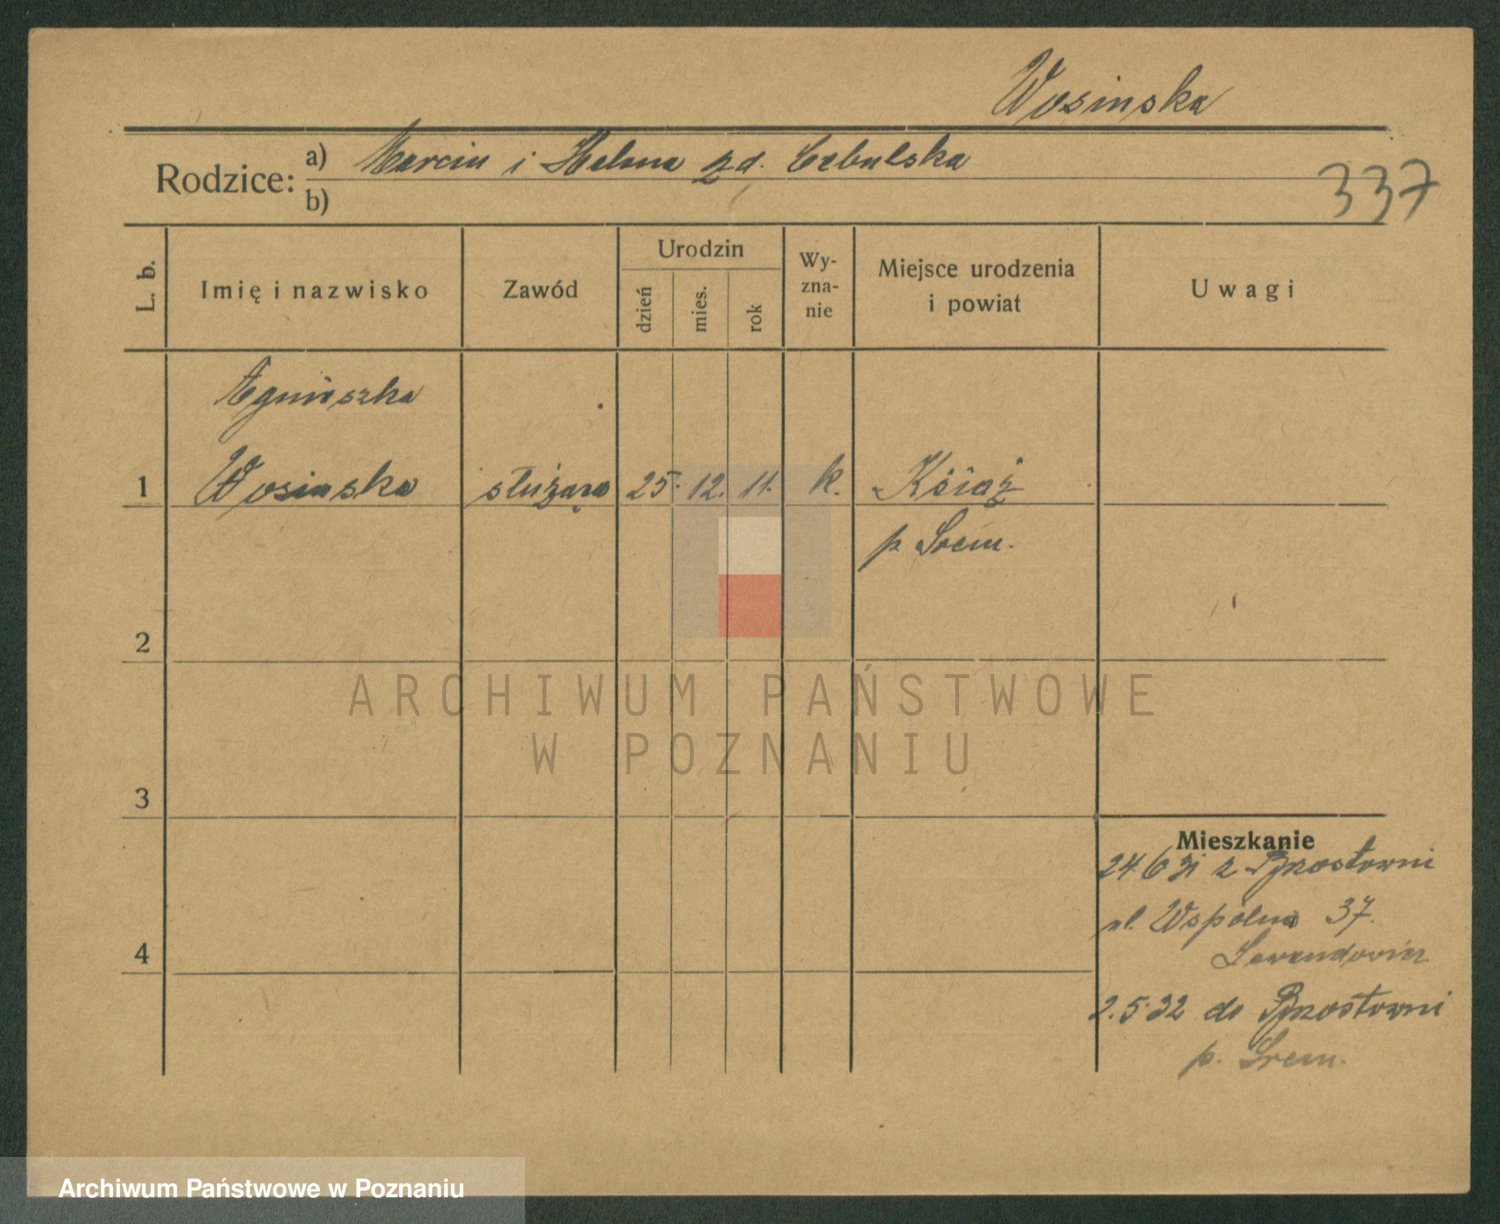 Wosinska
Rodzice: a) Marcin i Helena zd. Cebulska
b)
337
L. b.
Imię i nazwisko
Zawód
Urodzin
dzień
mies.
rok
Wy-
zna-
nie
Miejsce urodzenia
i powiat
Uwagi
Agnieszka
1 Wosinska służąca 25. 12. 11. k. Książ
p Śrem.
2
ARCHIWUM PAŃSTWOWE
W POZNANIU
3
Mieszkanie
24.6 31 z Brzostowni
ul. Wspólna 37.
4
2.5.32 do Brzostowni
p. Śrem.
Archiwum Państwowe w Poznaniu